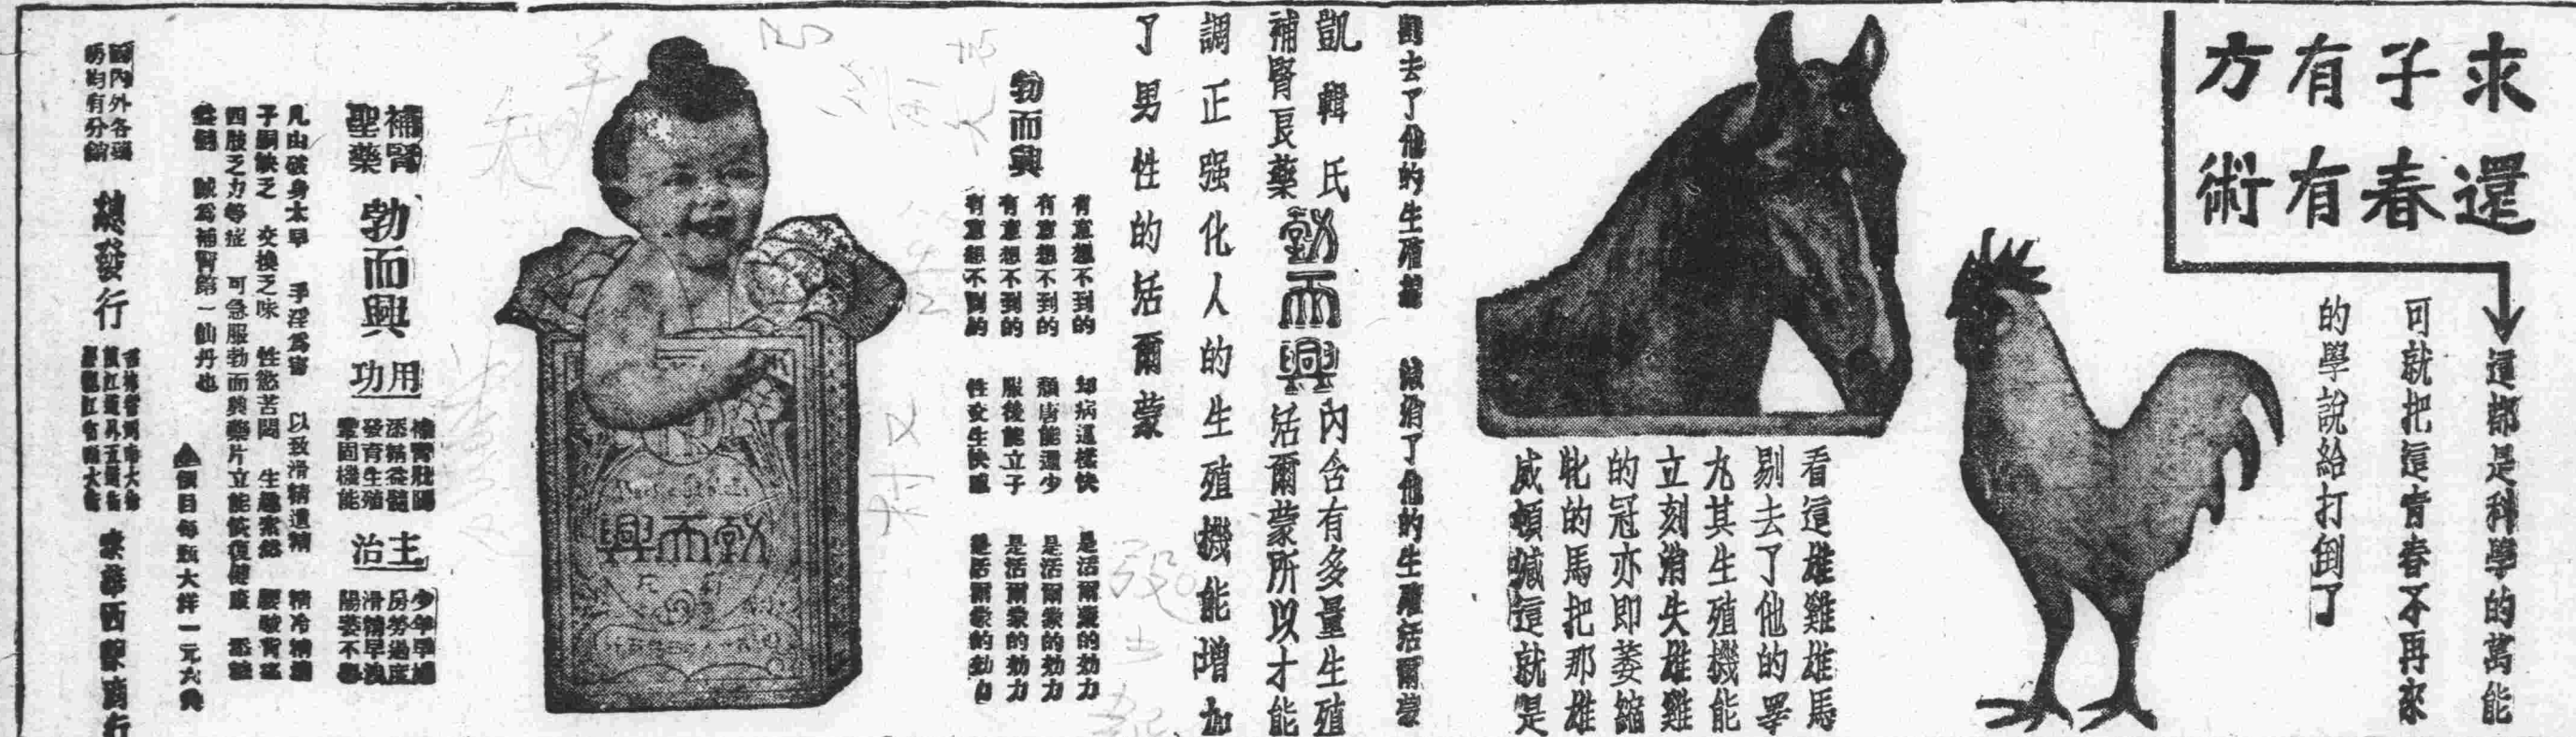 求子有方
還春有術
這都是科學的萬能
可就把這青春不再來
的學說給打倒了
看這雄雞雄馬
剔去了他的睪
丸其生殖機能
立刻消失雄雞
的冠亦即萎縮
牝的馬把那雄
威頓喊這就是
去了他的生殖
消了他的生殖活爾蒙
凱輯氏
補腎良藥
勃而興
內含有多量生殖
活爾蒙所以才能
調正强化人的生殖機能增加
了男性的活爾蒙
勃而興
有意想不到的 却病這樣快 是活爾蒙的効力
有意想不到的 頹唐能還少 是活爾蒙的効力
有意想不到的 服後能立子 是活爾蒙的効力
有意想不到的 性交生快感 是活爾蒙的効力
勃而興
補腎聖藥
勃而興
用功
補腎壯陽
添精益髓
發育生殖
鞏固機能
主治
少年早婚
房勞過度
滑精早洩
陽萎不舉
凡由破身太早 手淫為害 以致滑精遺精 精冷精薄
子嗣缺乏 交換乏味 性慾苦悶 生趣索然 腰酸背痛
四肢乏力等症 可急服勃而興藥片立能恢復健康 添精
益髓 誠為補腎第一仙丹也
價目每瓶大洋一元六角
國內外各藥
房均有分銷
總發行
西藥商行